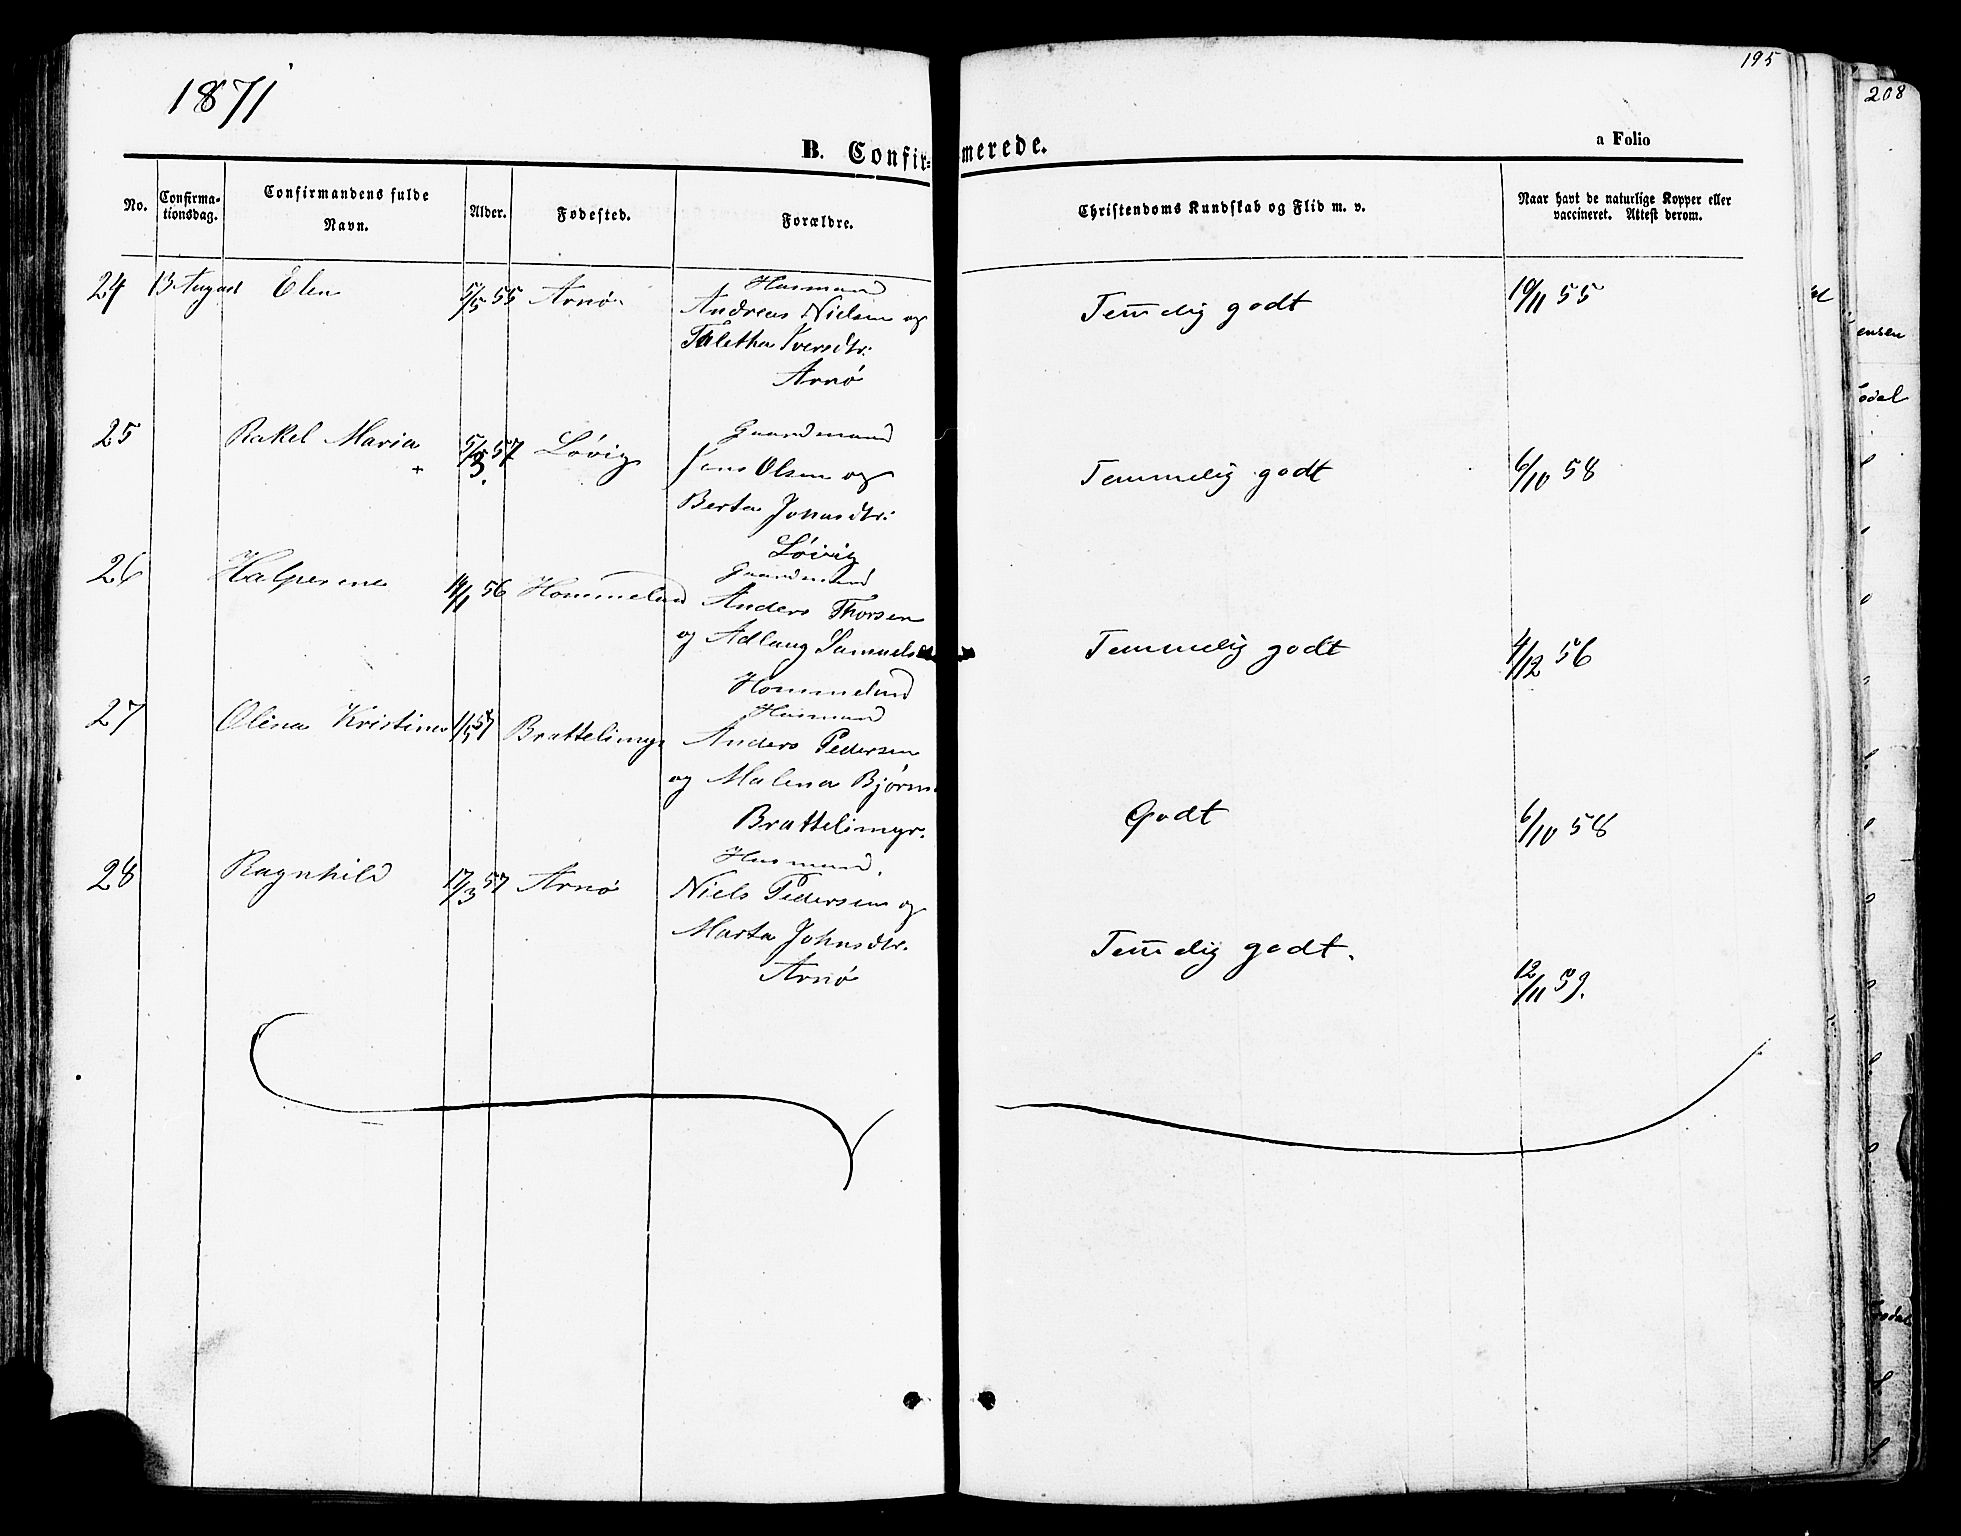 1871
195
208
B. Confir=
merede.
a Folio
No.
Confirma-
tionsdag.
Confirmandens fulde
Navn.
Alder.
Fødested.
Forældre.
Christendoms Kundskab og Flid m. v.
Naar havt de naturlige Kopper eller
vaccineret. Attest derom.
24 13 August Elen 5/5 55 Arnø Husmand
Andreas Nielsen og
Talethea Iversdtr:
Arnø
Tem̅elig godt 19/11 55
25 Rakel Maria + 5/3. 57 Løvig Gaardmand
Jens Olsen og
Berta Johnsdtr:
Løvig
Temmelig godt 6/10 58
26 56 Hommeland Gaardmand
Anders Thorsen
og Adlaug Samuels
Hommeland
Temmelig godt 4/12 56
27 Olina Kristine 1/5 57 Brattelimyr Husmand
Anders Pedersen
og Malena Bjørns
Brattelimyr.
Godt 6/10 58
28 Ragnhild 17/3 57 Arnø Husmand.
Niels Pedersen og
Marta Johnsdtr.
Arnø
Tem̅elig godt. 12/11 59.
ensen